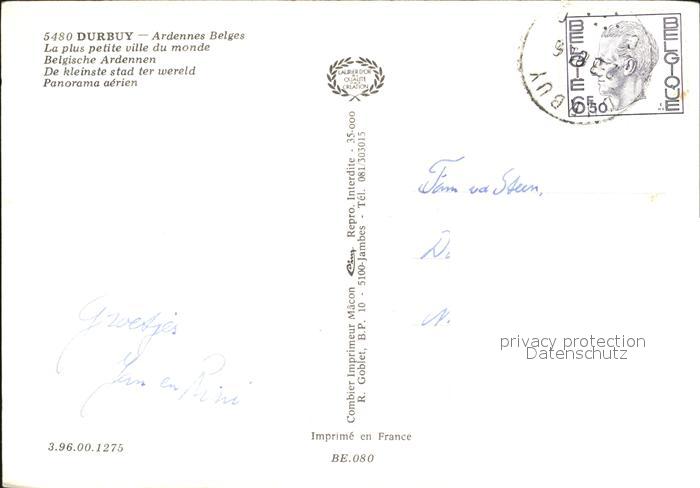 5480 DURBUY — Ardennes Belges
La plus petite ville du monde
Belgische Ardennen
De kleinste stad ter wereld
Panorama aérien
LAURIER D'OR
DE LA
QUALITÉ
CRÉATION
BELGIE
BELGIQUE
6F50
BUY
Fam vd Steen,
D.
N.
privacy protection
Datenschutz
Groetjes
en Rini
Combier Imprimeur Mâcon Cim Repro. Interdite - 35-000
R. Goblet, B.P. 10 - 5100-Jambes - Tél. 081/303015
3.96.00.1275
Imprimé en France
BE.080